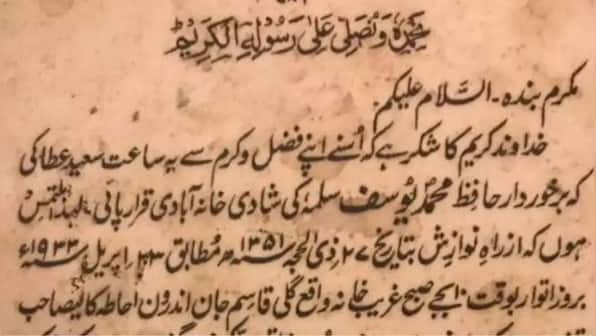 نحمدہ ونصلی علی رسولہ الکریم
مکرم بندہ ۔ السَّلام علیکم
خداوند کریم کا شکر ہے کہ اُسنے اپنے فضل وکرم سے یہ ساعت سعید عطا کی
کہ برخوردار حافظ محمد یوسف سلمہٗ کی شادی خانہ آبادی قرار پائی ۔ لہٰذا ملتمس
ہوں کہ از راہِ نوازش بتاریخ ۲۷ ذی الحجہ ۱۳۵۱ سنہ ھ مُطابق ۲۳ اپریل سنہ ۱۹۳۳ء
بروز اتوار بوقت ۱۰ بجے صبح غریب خانہ واقع گلی قاسم جان اندرون احاطہ کالیصاحب